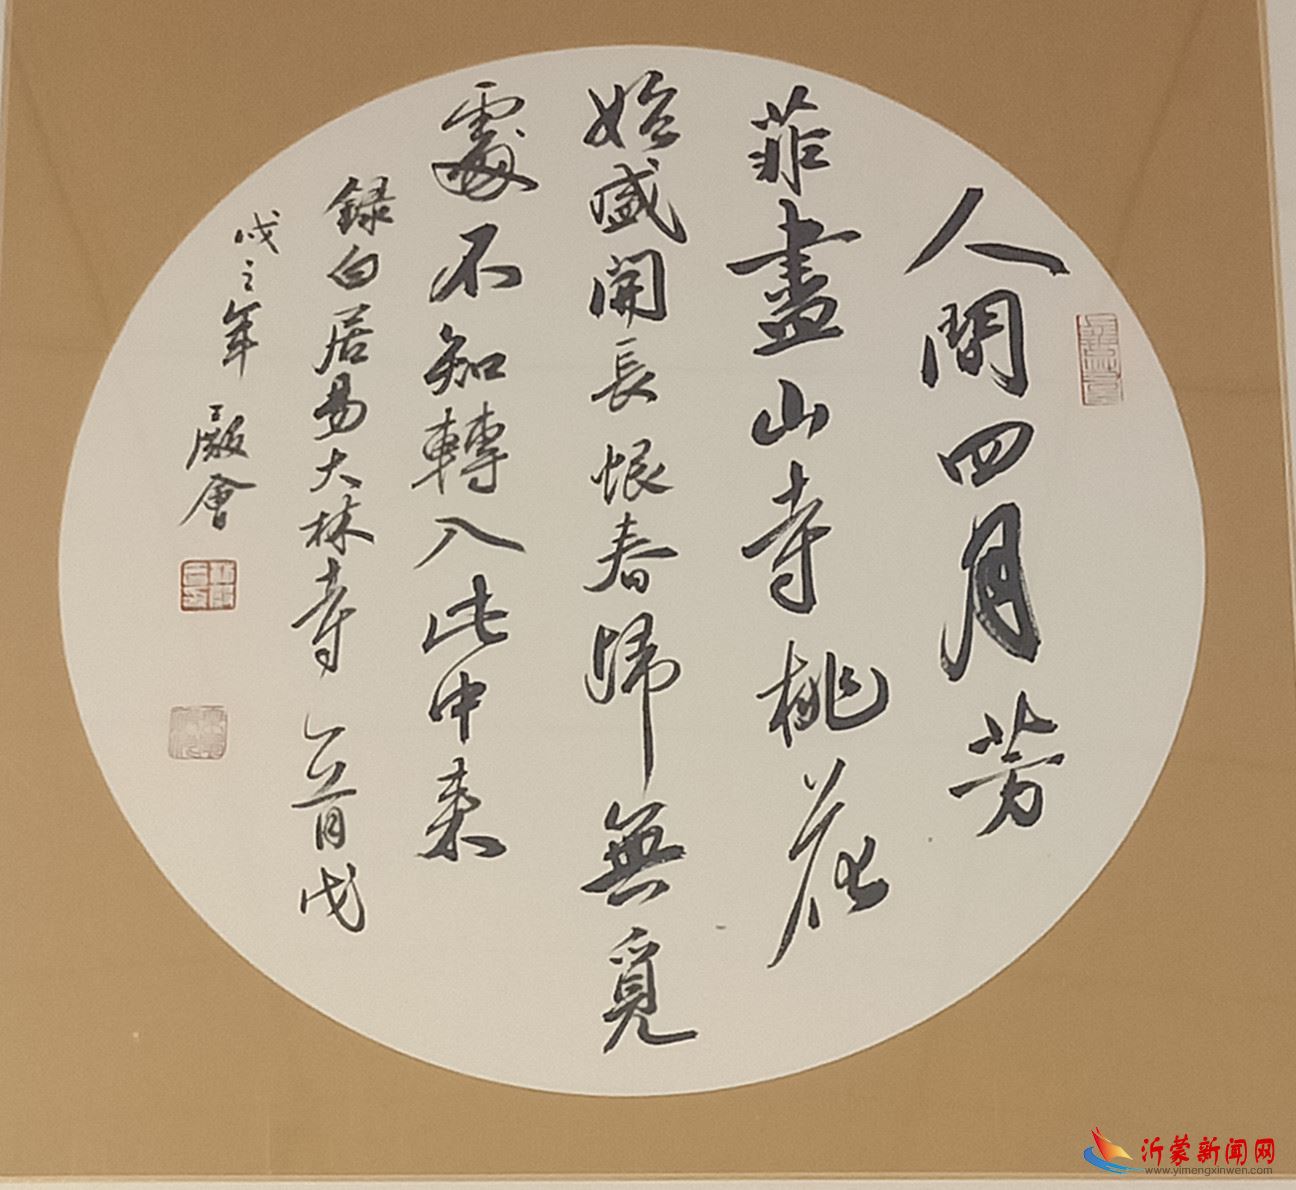 人間四月芳
菲盡山寺桃花
始盛開長恨春歸無覓
處不知轉入此中来
録白居易大林寺
年 嚴會
沂蒙新闻网
www.yimengxinwen.com